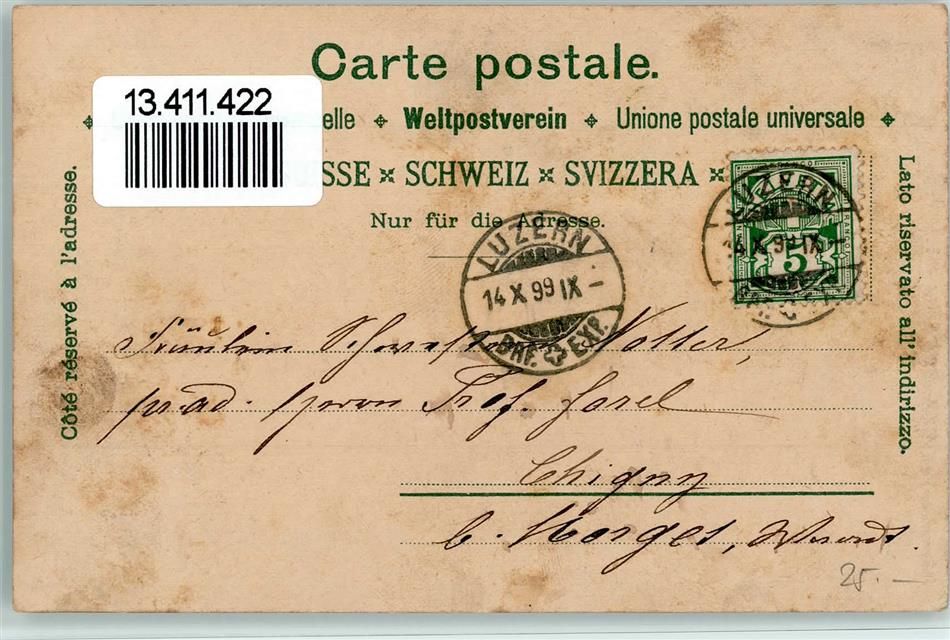 Carte postale.
13.411.422
elle Weltpostverein Unione postale universale
SSE × SCHWEIZ × SVIZZERA ×
Nur für die Adresse.
Côté réservé à l'adresse.
Lato riservato all' indirizzo.
LUZERN
14 X 99 IX –
BRF. EXP.
LUZERN
14 X 99 IX –
5
Fräulein Notter,
Prof. Forel
Chigny
b. Morges,
25.–